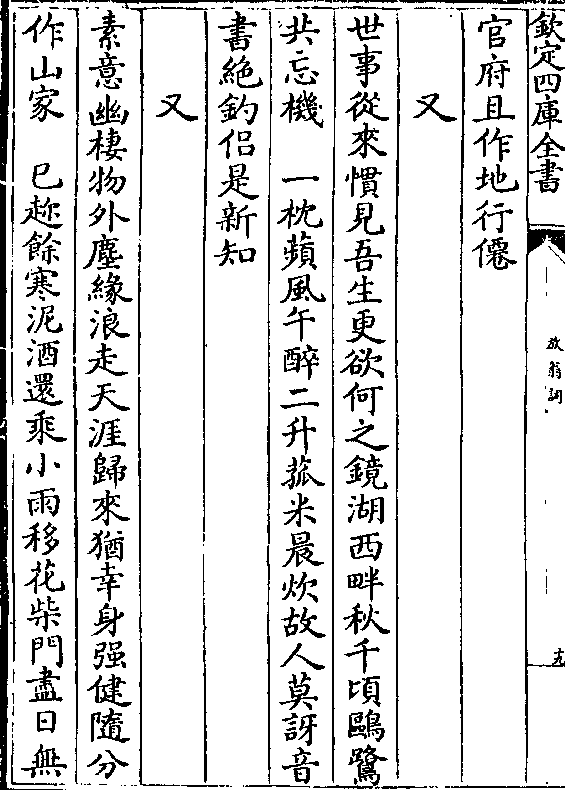 欽定四庫全書
放翁詞
九
官府且作地行僊
又
世事從來慣見吾生更欲何之鏡湖西畔秋千頃鷗鷺
共忘機　一枕蘋風午醉二升菰米晨炊故人莫訝音
書絶釣侣是新知
又
素意幽棲物外塵緣浪走天涯歸來猶幸身强健隨分
作山家　已趂餘寒泥酒還乘小雨移花柴門盡日無